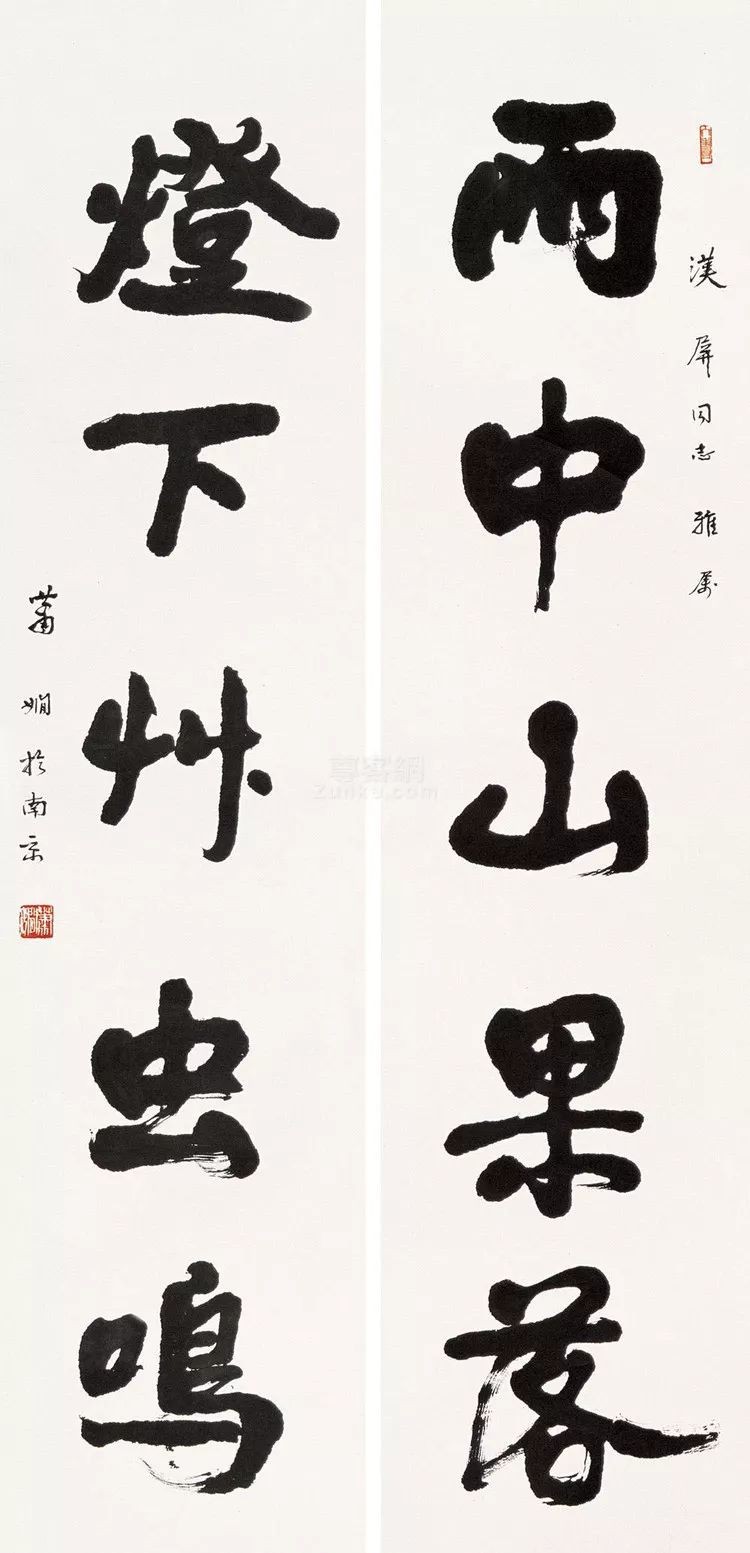 漢屏同志雅属
雨中山果落
燈下艸虫鳴
蕭嫻於南京
蕭嫻
尊客網
Zunke.com